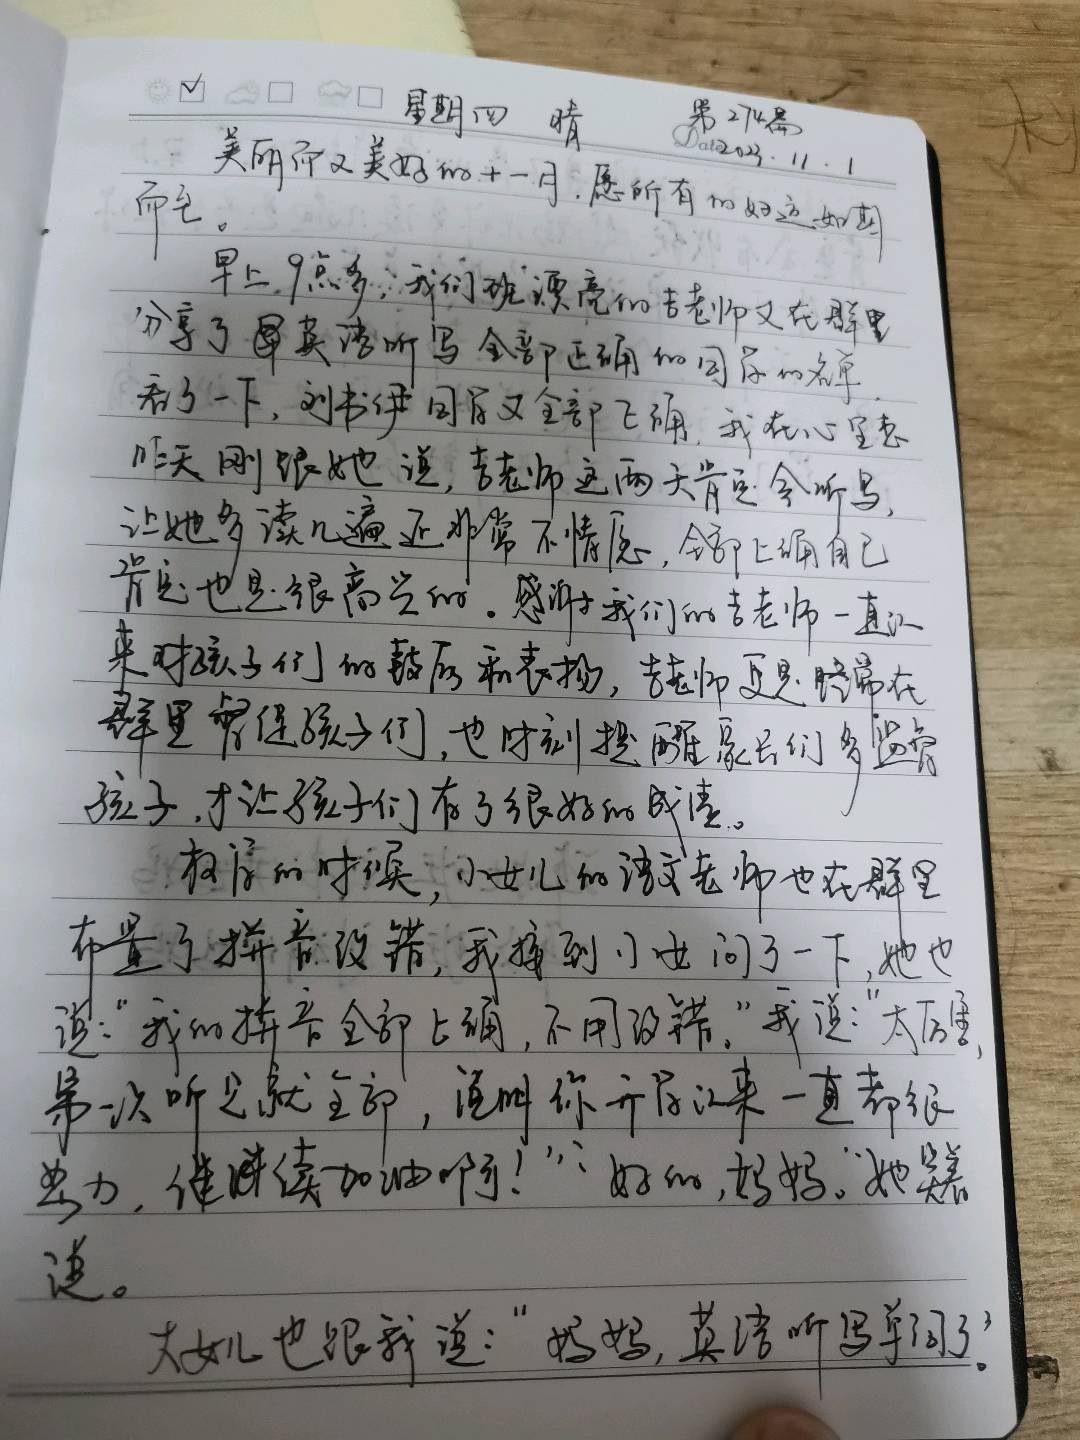 星期四 晴 第274篇
Date 2023.11.1
美丽而又美好的十一月，愿所有的好运如期
而至。
早上9点多，我们班漂亮的吉老师又在群里
分享了英语听写全部正确的同学的名单，
看了一下，刘书伊同学又全部正确，我在心里想
昨天刚跟她说，吉老师这两天肯定会听写，
让她多读几遍还非常不情愿，全部正确自己
肯定也是很高兴的。感谢我们的吉老师一直以
来对孩子们的鼓励和表扬，吉老师更是时常在
群里督促孩子们，也时刻提醒家长们多监督
孩子，才让孩子们有了很好的成绩。
放学的时候，小女儿的语文老师也在群里
布置了拼音改错，我接到小女问了一下，她也
说：“我的拼音全部正确，不用改错。”我说：“太厉害，
第一次听写就全部，说明你开学以来一直都很
努力，继续加油啊！”“好的，妈妈。”她笑着
说。
大女儿也跟我说：“妈妈，英语听写单词了，